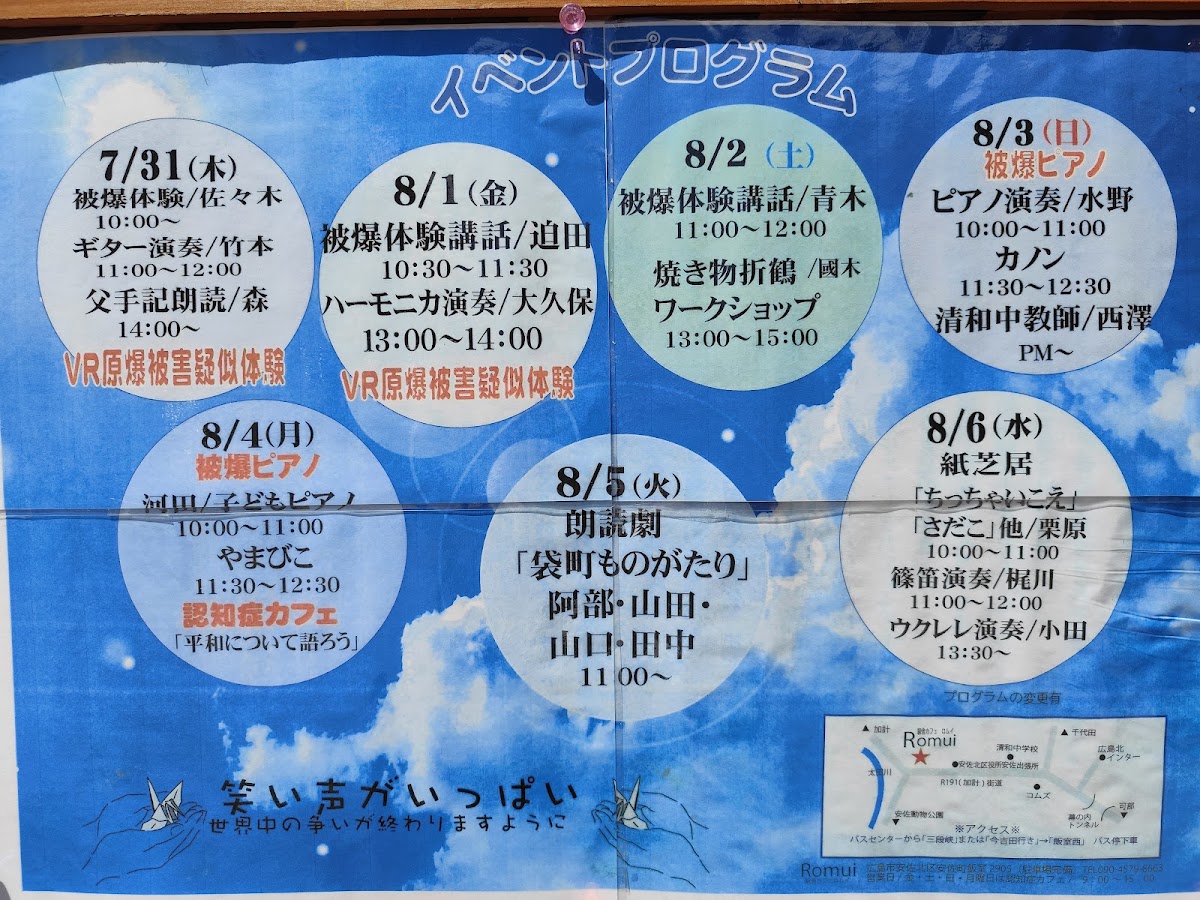 イベントプログラム
7/31(木)
被爆体験/佐々木
10:00〜
ギター演奏/竹本
11:00〜12:00
父手記朗読/森
14:00〜
VR原爆被害疑似体験
8/1(金)
被爆体験講話/迫田
10:30〜11:30
ハーモニカ演奏/大久保
13:00〜14:00
VR原爆被害疑似体験
8/2(土)
被爆体験講話/青木
11:00〜12:00
焼き物折鶴/國木
ワークショップ
13:00〜15:00
8/3(日)
被爆ピアノ
ピアノ演奏/水野
10:00〜11:00
カノン
11:30〜12:30
清和中教師/西澤
PM〜
8/4(月)
被爆ピアノ
河田/子どもピアノ
10:00〜11:00
やまびこ
11:30〜12:30
認知症カフェ
「平和について語ろう」
8/5(火)
朗読劇
「袋町ものがたり」
阿部・山田・
山口・田中
11:00〜
8/6(水)
紙芝居
「ちっちゃいこえ」
「さだこ」他/栗原
10:00〜11:00
篠笛演奏/梶川
11:00〜12:00
ウクレレ演奏/小田
13:30〜
プログラムの変更有
笑い声がいっぱい
世界中の争いが終わりますように
▲加計
カフェ ロムイ
Romui
清和中学校
▲千代田
広島北
インター
太田川
安佐北区役所安佐出張所
R191(加計)街道
コムズ
安佐動物公園
幕の内
トンネル
可部
※アクセス※
バスセンターから「三段峡」または「今吉田行き」→「飯室西」 バス停下車
Romui
広島市安佐北区安佐町飯室
営業日/金・土・日・月曜日は認知症カフェ